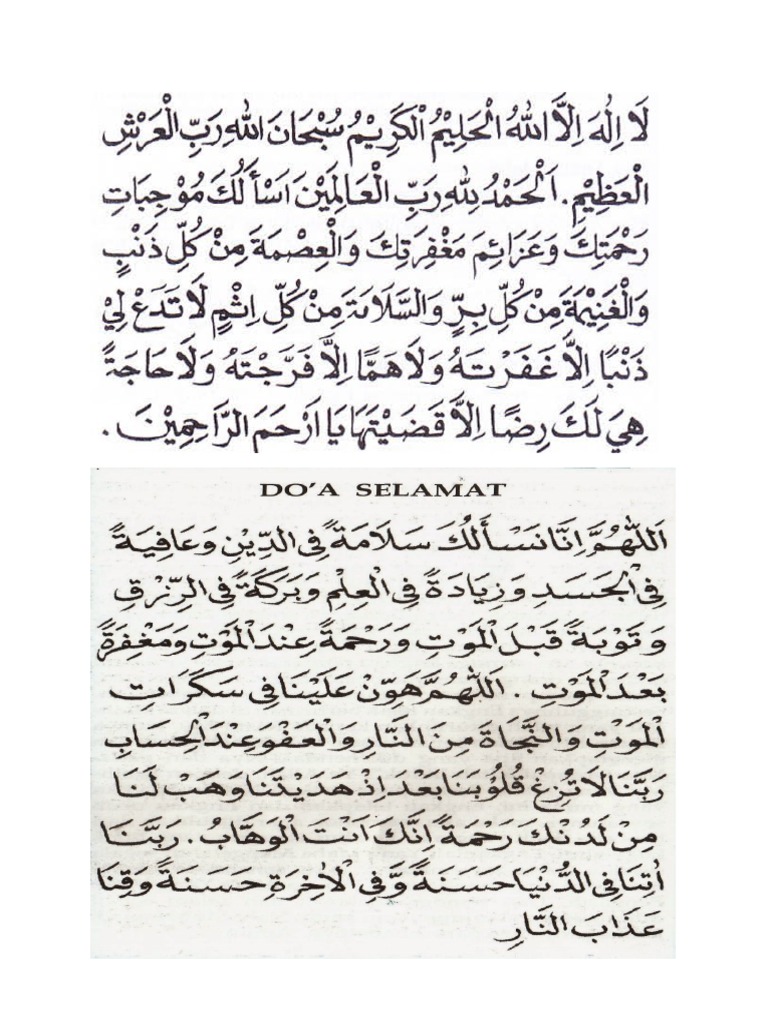 لَا اِلٰهَ اِلَّا اللهُ الْحَلِيْمُ الْكَرِيْمُ سُبْحَانَ اللهِ رَبِّ الْعَرْشِ
الْعَظِيْمِ. اَلْحَمْدُ لِلّٰهِ رَبِّ الْعَالَمِيْنَ اَسْأَلُكَ مُوْجِبَاتِ
رَحْمَتِكَ وَعَزَائِمَ مَغْفِرَتِكَ وَالْعِصْمَةَ مِنْ كُلِّ ذَنْبٍ
وَالْغَنِيْمَةَ مِنْ كُلِّ بِرٍّ وَالسَّلَامَةَ مِنْ كُلِّ اِثْمٍ لَا تَدَعْ لِيْ
ذَنْبًا اِلَّا غَفَرْتَهُ وَلَا هَمًّا اِلَّا فَرَّجْتَهُ وَلَا حَاجَةً
هِيَ لَكَ رِضًا اِلَّا قَضَيْتَهَا يَا اَرْحَمَ الرَّاحِمِيْنَ.
DO'A SELAMAT
اَللّٰهُمَّ اِنَّا نَسْأَلُكَ سَلَامَةً فِى الدِّيْنِ وَعَافِيَةً
فِى الْجَسَدِ وَزِيَادَةً فِى الْعِلْمِ وَبَرَكَةً فِى الرِّزْقِ
وَتَوْبَةً قَبْلَ الْمَوْتِ وَرَحْمَةً عِنْدَ الْمَوْتِ وَمَغْفِرَةً
بَعْدَ الْمَوْتِ. اَللّٰهُمَّ هَوِّنْ عَلَيْنَا فِى سَكَرَاتِ
الْمَوْتِ وَالنَّجَاةَ مِنَ النَّارِ وَالْعَفْوَ عِنْدَ الْحِسَابِ
رَبَّنَا لَا تُزِغْ قُلُوْبَنَا بَعْدَ اِذْ هَدَيْتَنَا وَهَبْ لَنَا
مِنْ لَدُنْكَ رَحْمَةً اِنَّكَ اَنْتَ الْوَهَّابُ. رَبَّنَا
اٰتِنَا فِى الدُّنْيَا حَسَنَةً وَّفِى الْاٰخِرَةِ حَسَنَةً وَقِنَا
عَذَابَ النَّارِ